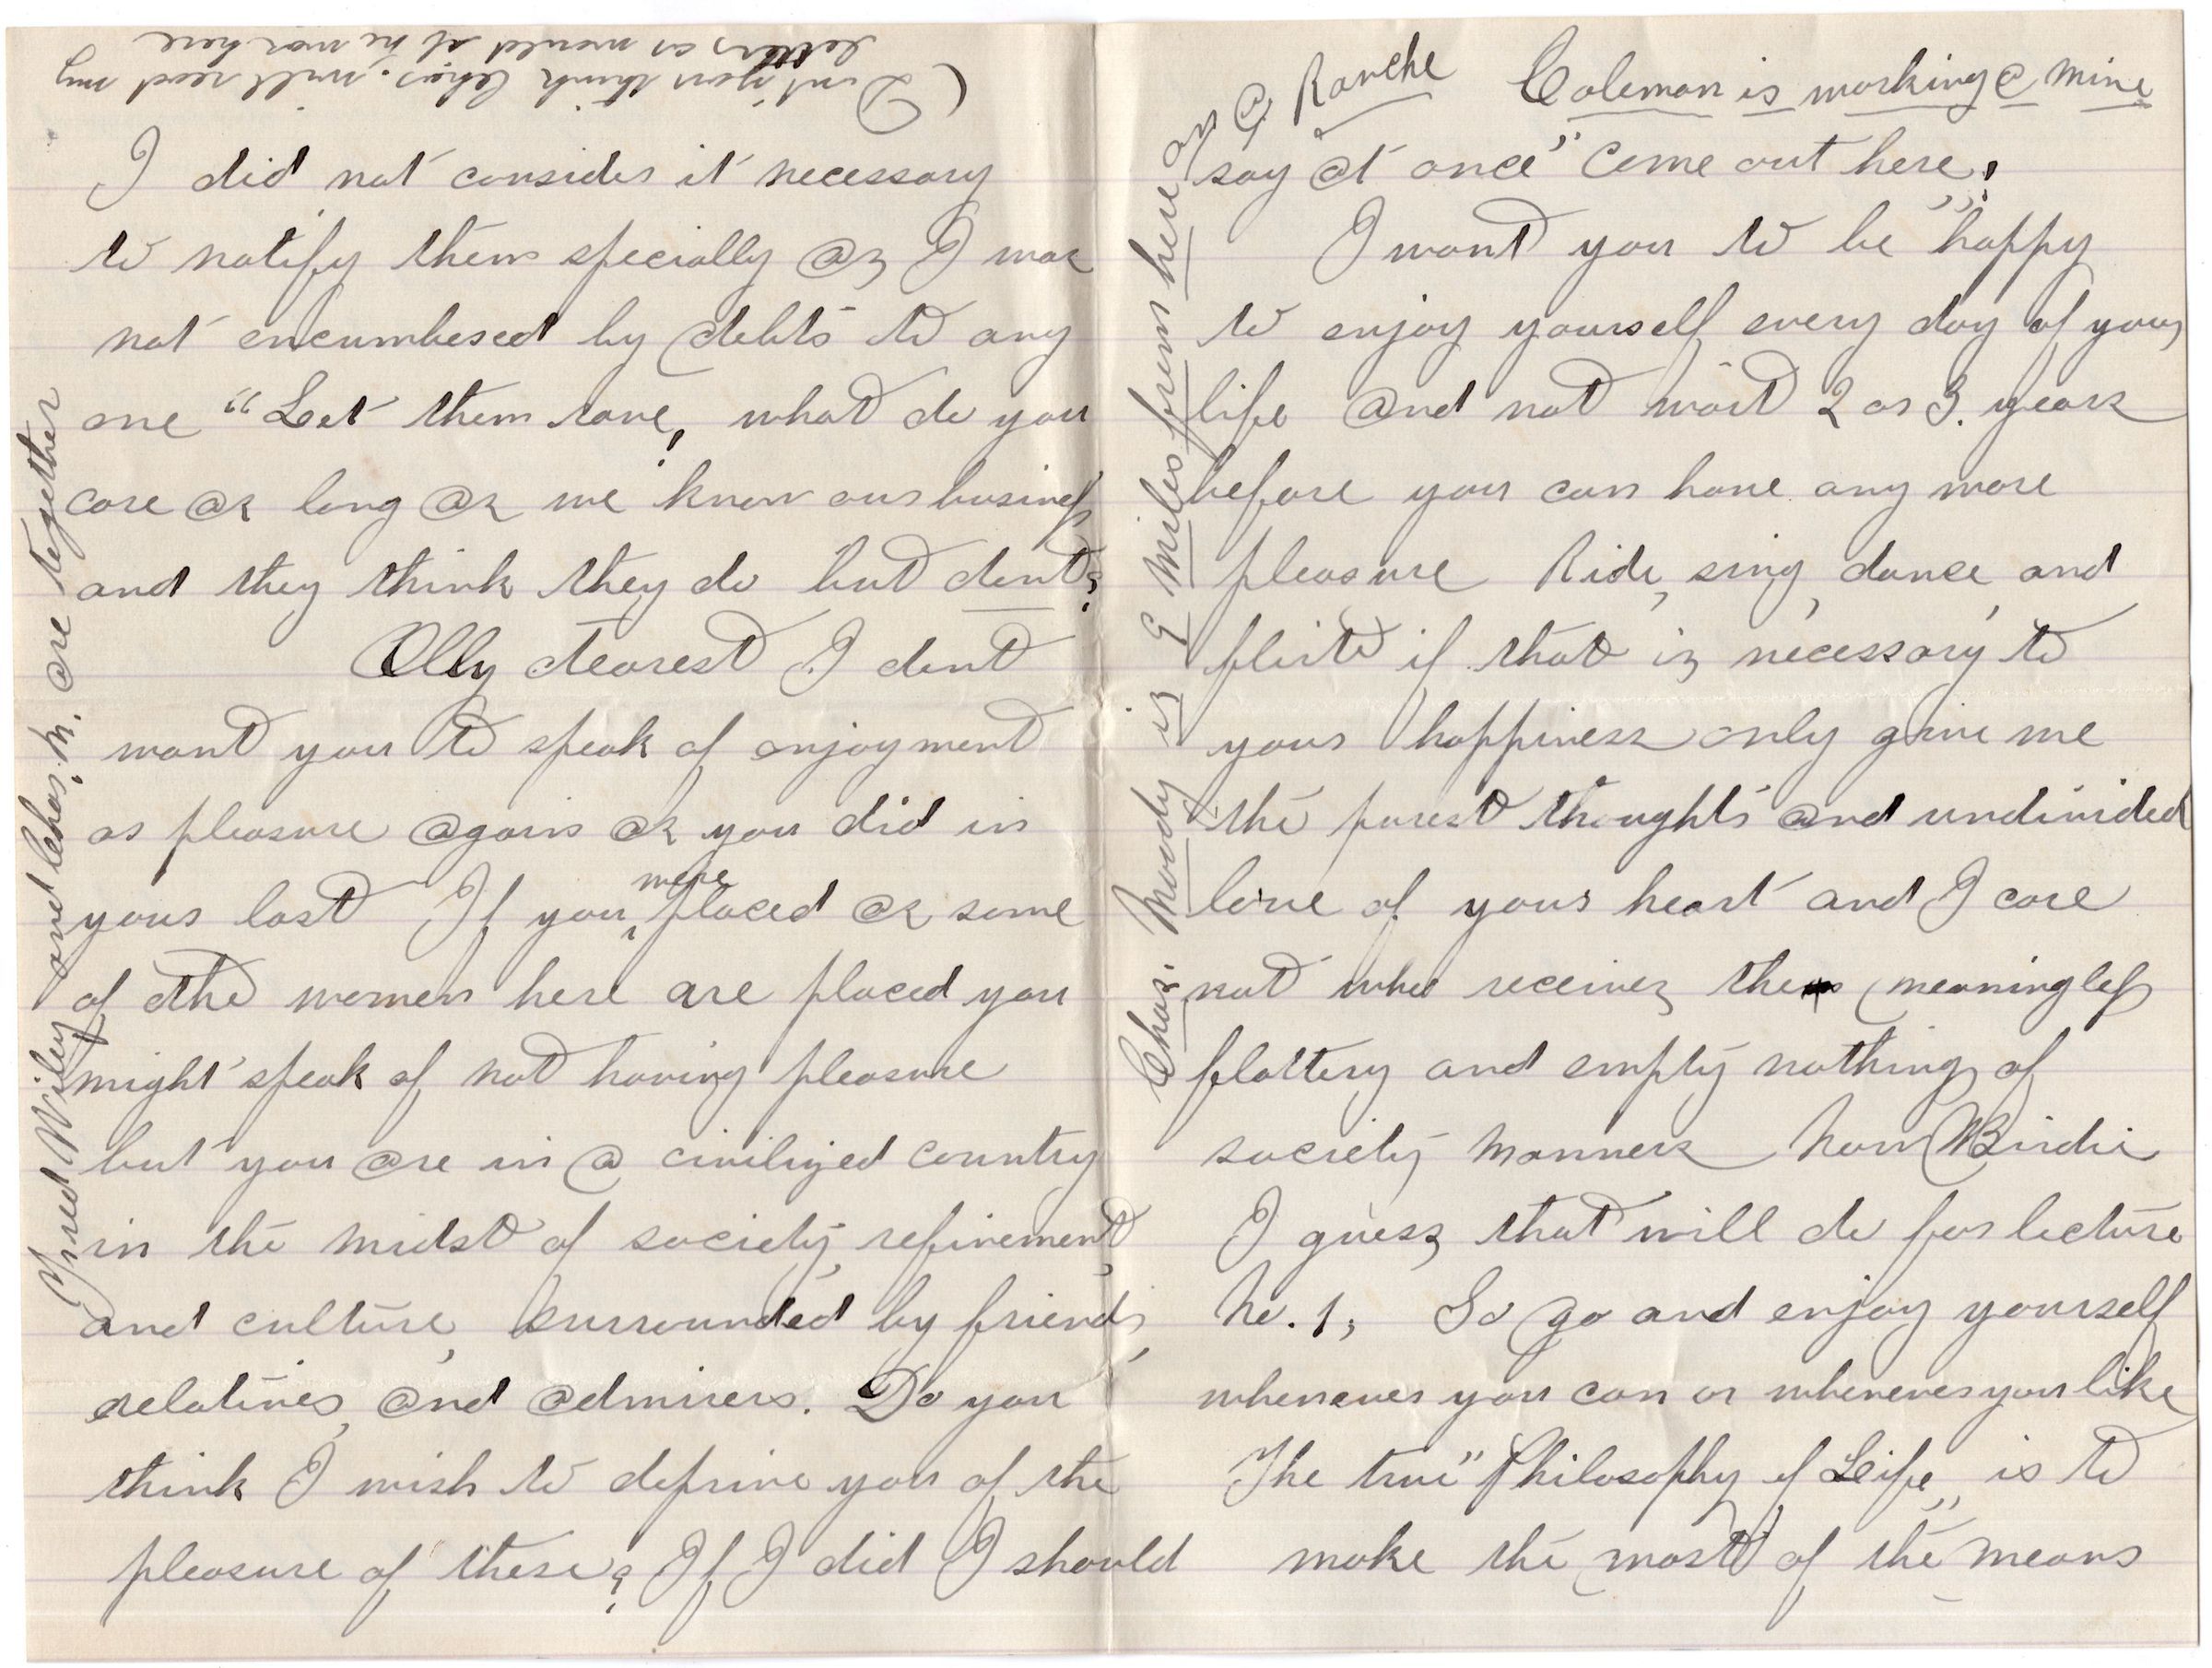 (Dont you think Chas. will read my
letters as would if he was here
I did not consider it necessary
to notify them specially as I was
not encumbered by debts to any
one "Let them rave, what do you
care as long as we know our business
and they think they do but dont?
Olly dearest I dont
want you to speak of enjoyment
or pleasure again as you did in
your last If you were placed as some
of the women here are placed you
might speak of not having pleasure
but you are in a civilized country
in the midst of society, refinement,
and culture, surrounded by friends,
relatives, and admirers. Do you
think I wish to deprive you of the
pleasure of these? If I did I should
Fred Wiley and Chas. M. are together
Coleman is working @ mine
say at once" Come out here!"
I want you to be "happy
to enjoy yourself every day of your
life and not wait 2 or 3. years
before you can have any more
pleasure Ride, sing, dance, and
flirt if that is necessary to
your happiness only give me
the purest thoughts and undivided
love of your heart and I care
not who receives the meaningless
flattery and empty nothings of
society manners Now Birdie
I guess that will do for lecture
No. 1, So go and enjoy yourself
whenever you can or whenever you like
The true "Philosophy of Life" is to
make the most of the means
Chas. Moody is 9 miles from here on @ Ranche